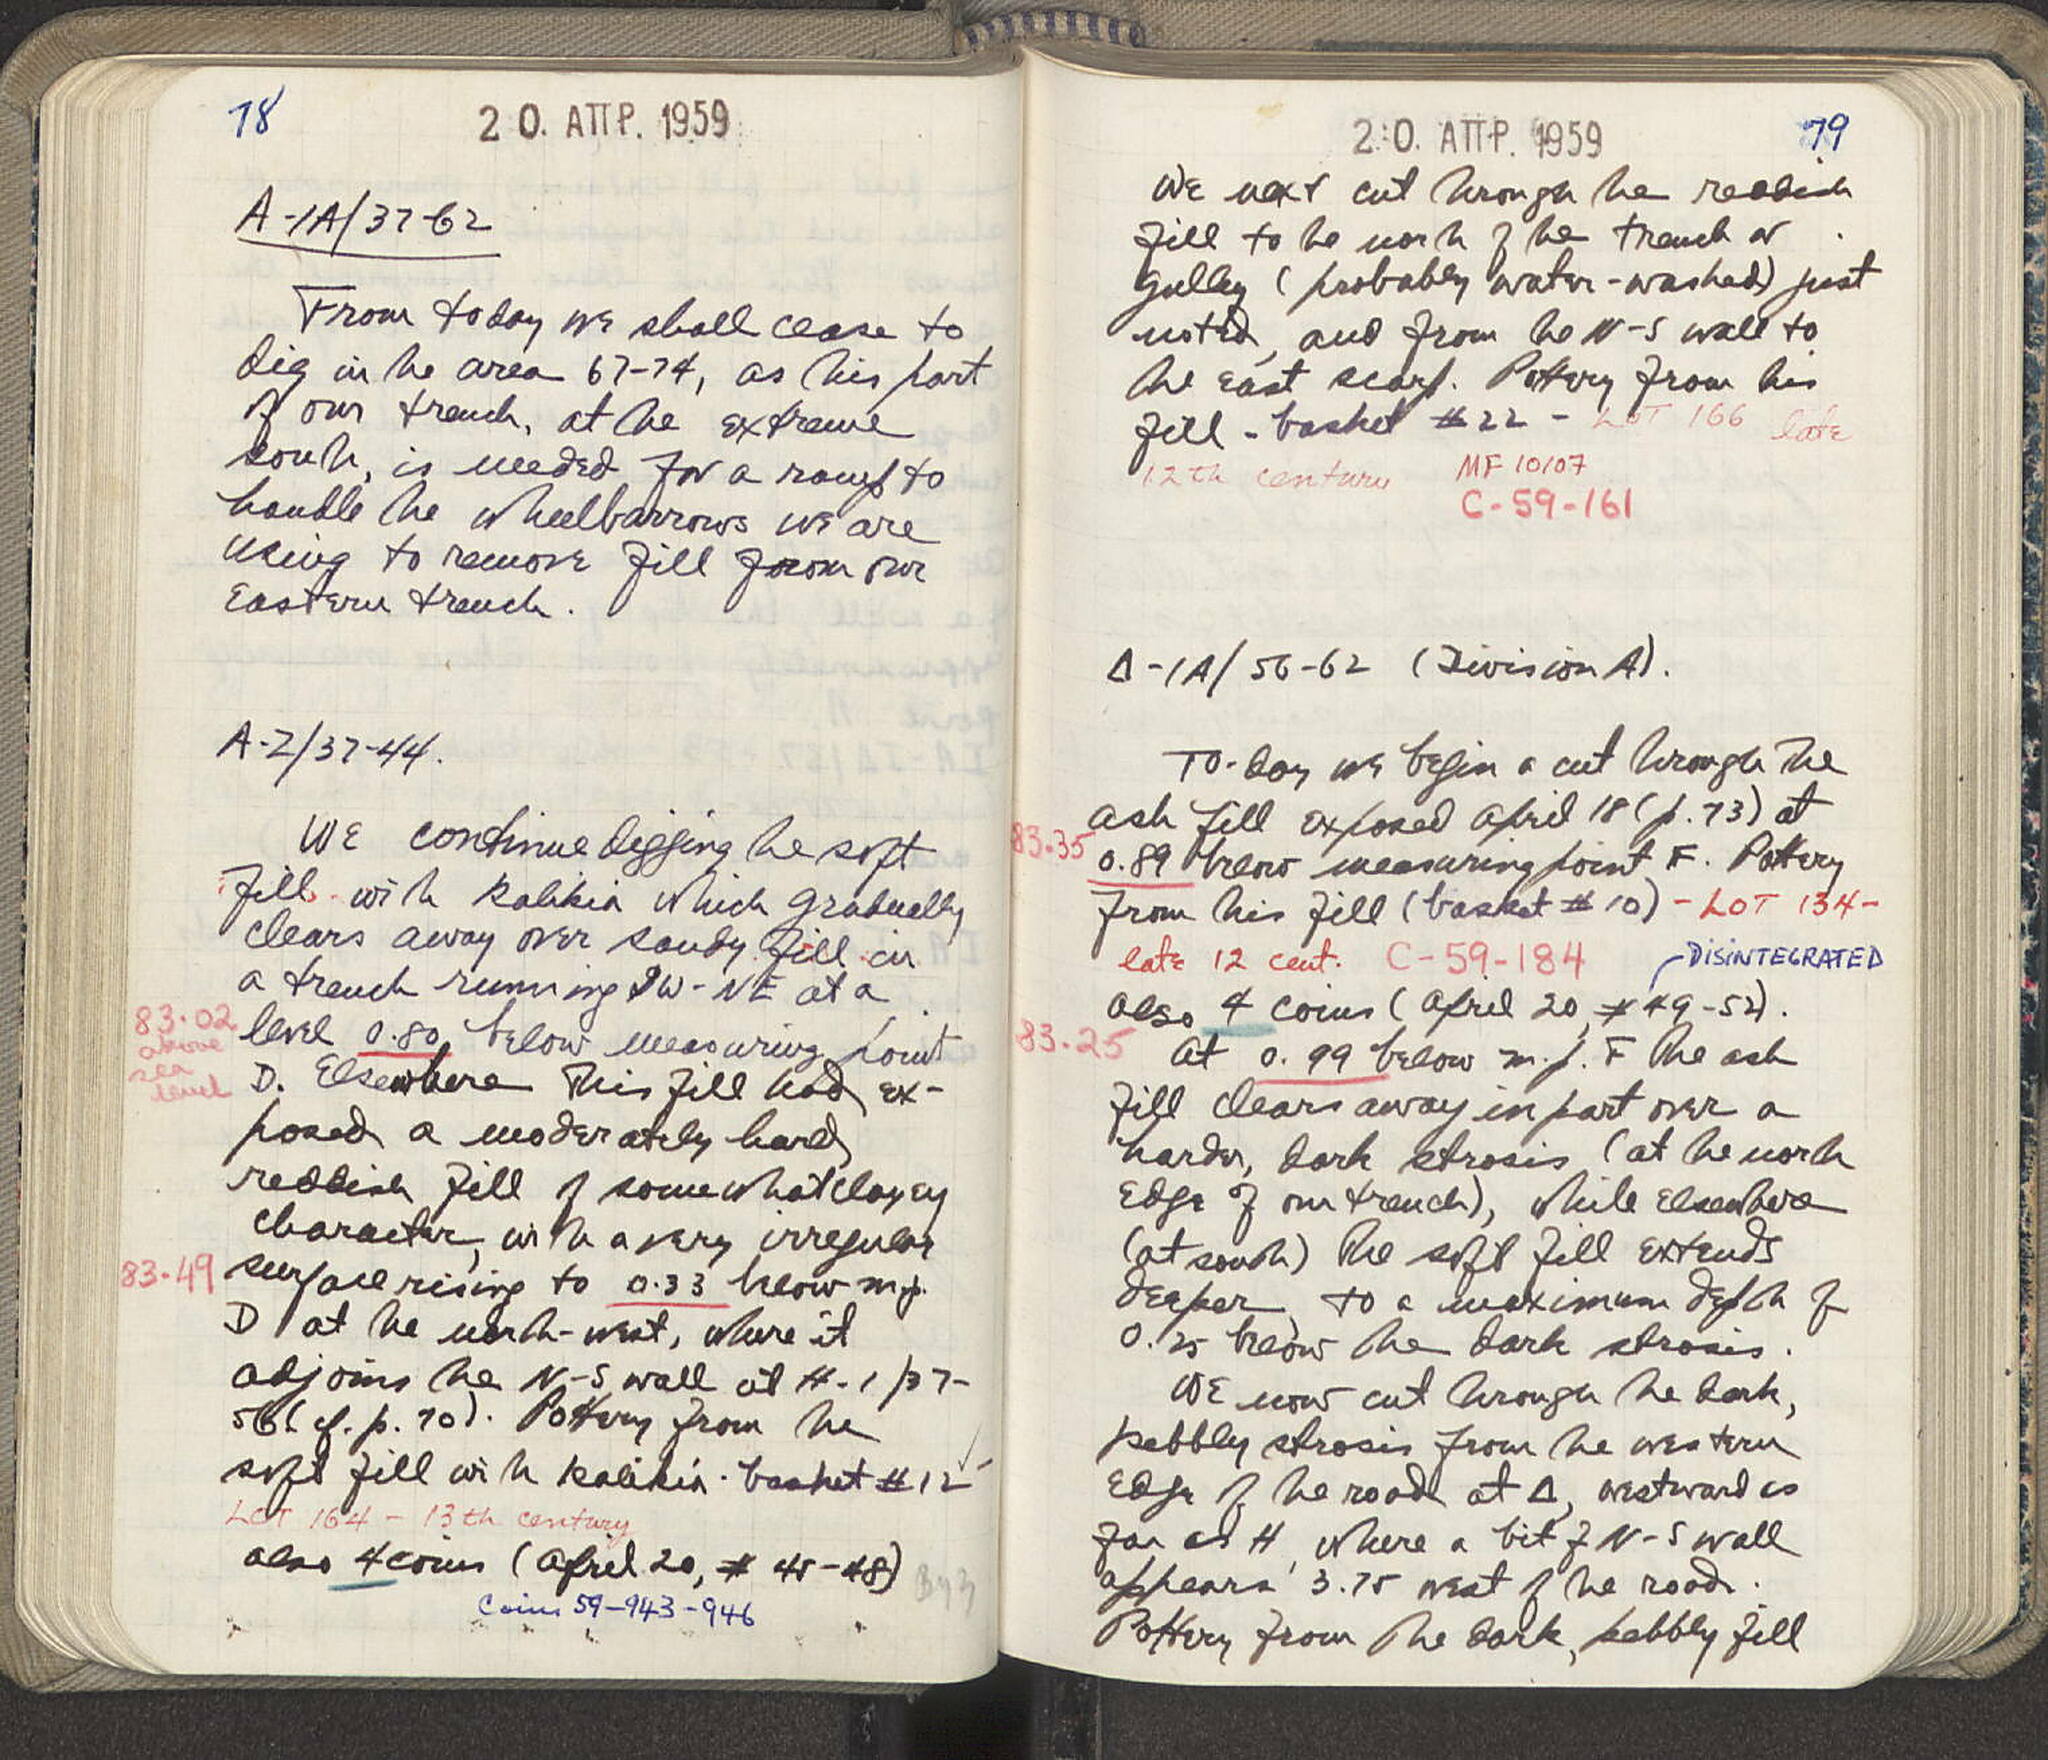 78
20. ΑΠΡ. 1959
A-1A/37-62
From today we shall cease to
dig in the area 67-74, as this part
of our trench, at the extreme
south, is needed for a ramp to
handle the wheelbarrows we are
using to remove fill from our
Eastern trench.
A-Z/37-44.
We continue digging the soft
fill with kalikia which gradually
clears away over sandy fill in
a trench running SW-NE at a
83.02 above sea level
level 0.80 below measuring point
D. Elsewhere this fill had ex-
posed a moderately hard,
reddish fill of somewhat clayey
character, with a very irregular
83.49
surface rising to 0.33 below m.p.
D at the north-west, where it
adjoins the N-S wall at H-1/37-
56 (cf. p. 70). Pottery from the
soft fill with kalikia - basket #12 -
LOT 164 - 13th century
also 4 coins (April 20, # 45-48)
Coins 59-943-946
79
20. ΑΠΡ. 1959
We next cut through the reddish
fill to the north of the trench or
gulley (probably water-washed) just
noted, and from the N-S wall to
the east scarp. Pottery from this
fill - basket #22 - LOT 166 late
12th century MF 10107
C-59-161
Δ-1A/56-62 (Division A).
To-day we begin a cut through the
ash fill exposed April 18 (p. 73) at
83.35
0.89 below measuring point F. Pottery
from this fill (basket #10) - LOT 134 -
late 12 cent. C-59-184
DISINTEGRATED
also 4 coins (April 20, #49-52).
83.25
At 0.99 below m.p. F the ash
fill clears away in part over a
harder, dark strosis (at the north
edge of our trench), while elsewhere
(at south) the soft fill extends
deeper, to a maximum depth of
0.25 below the dark strosis.
We now cut through the dark,
pebbly strosis from the western
edge of the road at Δ, westward as
far as H, where a bit of N-S wall
appears 3.75 west of the road.
Pottery from the dark, pebbly fill